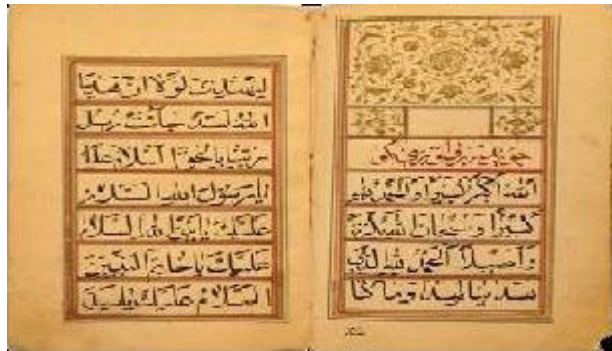 الله اكبر كبيرا و الحمد لله
كثيرا و سبحان الله بكرة
و اصيلا الحمد لله الذي
هدينا لهذا و ما كنا
لنهتدي لولا ان هدينا
الله لقد جائت رسل
ربنا بالحق السلام
رسول الله السلام
عليك يا نبي الله السلام
عليك يا خاتم النبيين
السلام عليك